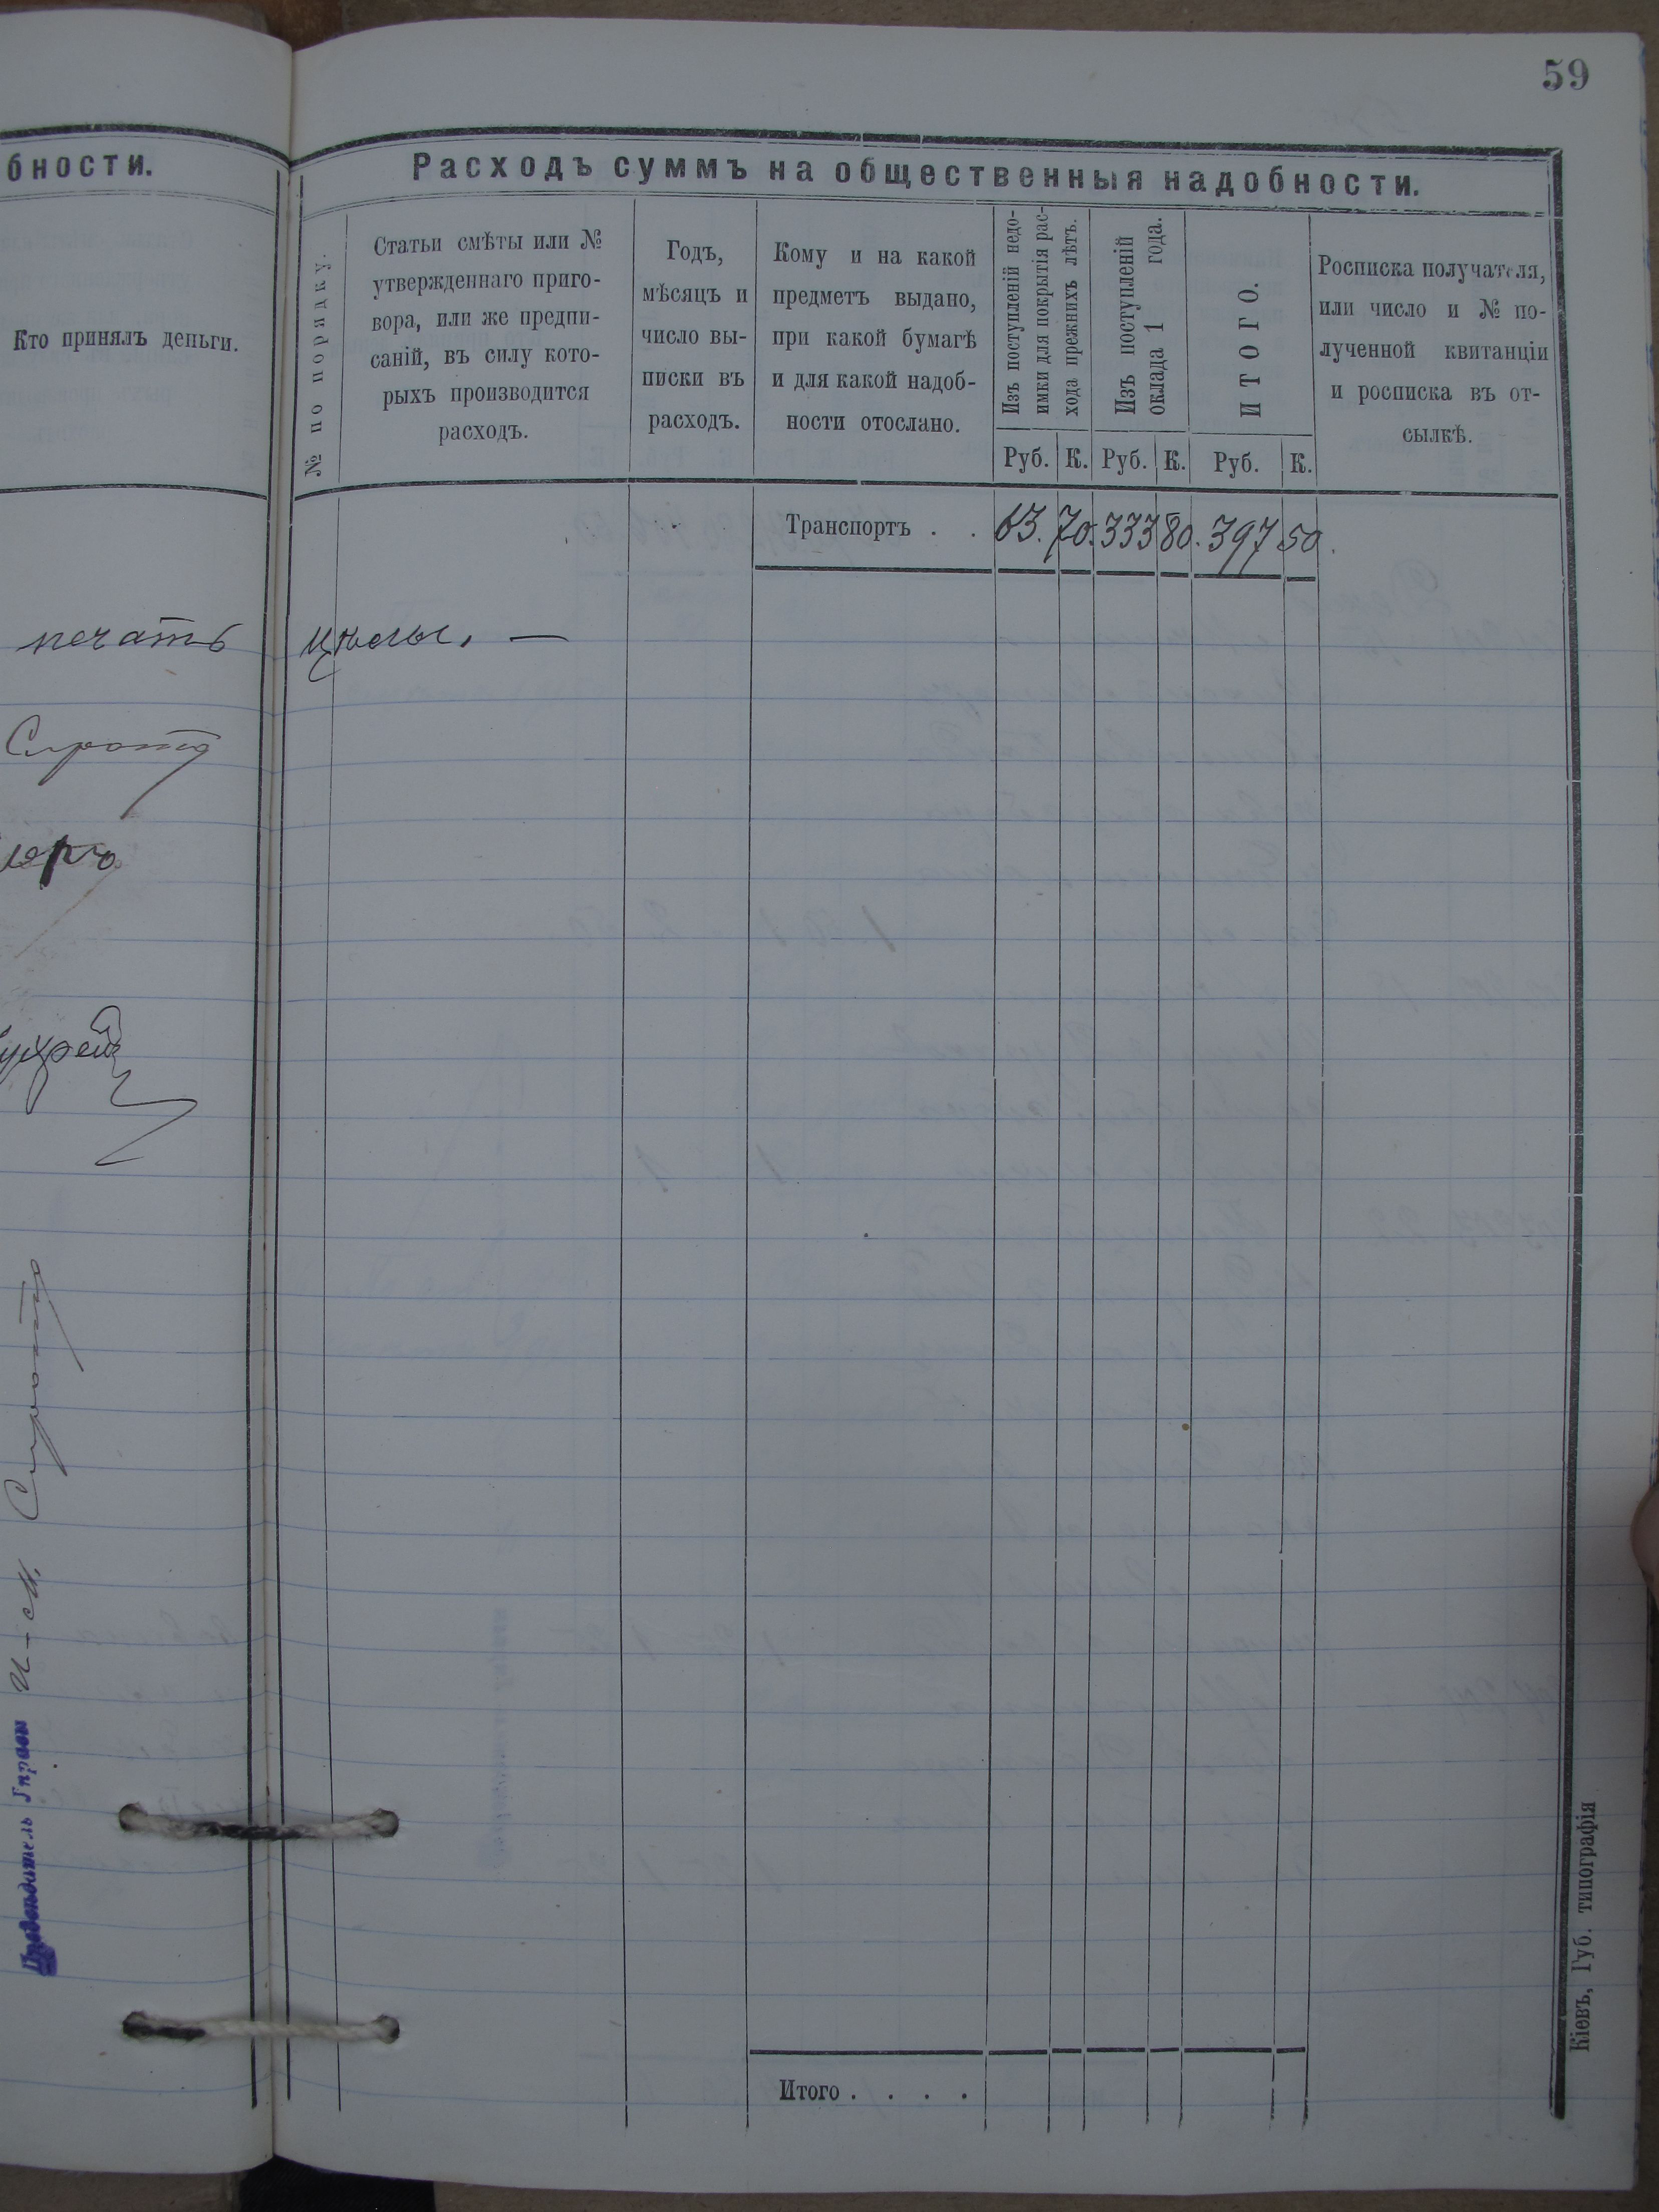 59
бности.
Кто принялъ деньги.
печать цѣлы. —
Сирота
И-с М. Сирота
Расходъ суммъ на общественныя надобности.
№ по порядку.
Статьи смѣты или №
утвержденнаго приго-
вора, или же предпи-
саній, въ силу кото-
рыхъ производится
расходъ.
Годъ,
мѣсяцъ и
число вы-
писки въ
расходъ.
Кому и на какой
предметъ выдано,
при какой бумагѣ
и для какой надоб-
ности отослано.
Изъ поступленій недо-
имки для покрытія рас-
хода прежнихъ лѣтъ.
Изъ поступленій
оклада 1 года.
ИТОГО.
Росписка получателя,
или число и № по-
лученной квитанціи
и росписка въ от-
сылкѣ.
Руб. К. Руб. К. Руб. К.
Транспортъ . . 63. 70. 333 80. 397 50.
Итого . . . .
Кіевъ, Губ. типографія